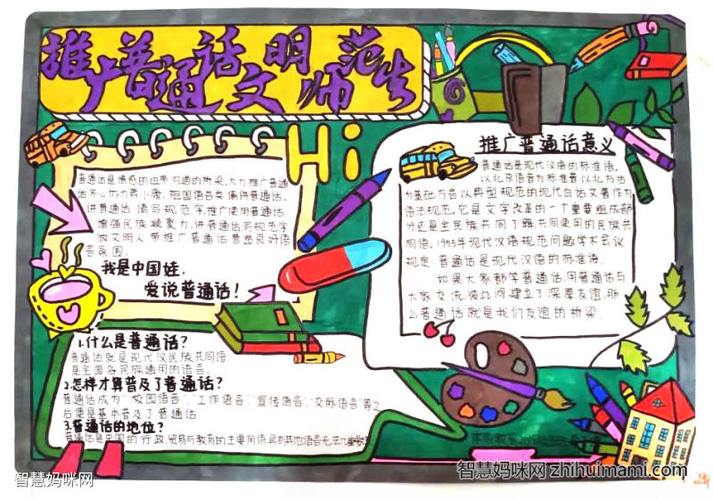 推广普通话 文明师范生
Hi
普通话是情感的纽带,沟通的桥梁,大力推广普通
话齐心协力奔小康,祖国语言美,偏讲普通话。
讲普通话 请写规范字,推广使用普通话
增强民族凝聚力,讲普通话写规范字
做文明人 努推广普通话营造良好语
言氛围
我是中国娃,
爱说普通话!
推广普通话意义
普通话是现代汉语的标准语,
以北京语音为标准音以北方话
为基础方言以典型规范的现代白话文著作为
语法规范,它是文字改革的一个重要组成部
分还是全民族共同了解共同使用的民族共
同语,1955年现代汉语规范问题学术会议
规定 普通话是现代汉语的标准语
如果大家都学普通话,用普通话与
大家交流,彼此间建立了深厚友谊,那
么普通话就是我们友谊的桥梁.
1.什么是普通话?
普通话就是现代汉民族共同语
是全国各民族通用的语言。
2.怎样才算普及了普通话?
普通话成为"校园语言"、"工作语言"、"宣传语言"、"交际语言"等之
后便是基本普及了普通话
3.普通话的地位?
普通话是中国的行政、贸易与教育的主要用语
智慧妈咪网
智慧妈咪网 zhihuimami.com